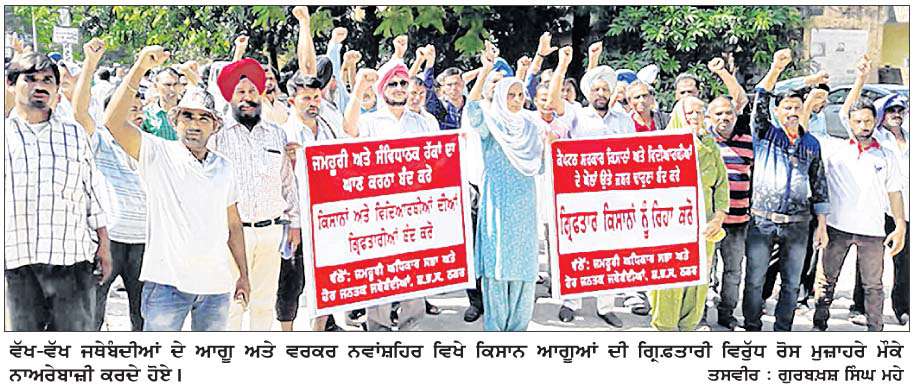 ਜਮਹੂਰੀ ਅਤੇ ਸੰਵਿਧਾਨਕ ਹੱਕਾਂ ਦਾ
ਘਾਣ ਕਰਨਾ ਬੰਦ ਕਰੋ
ਕਿਸਾਨਾਂ ਅਤੇ ਵਿਦਿਆਰਥੀਆਂ ਦੀਆਂ
ਗ੍ਰਿਫਤਾਰੀਆਂ ਬੰਦ ਕਰੋ
ਵੱਲੋਂ: ਜਮਹੂਰੀ ਅਧਿਕਾਰ ਸਭਾ ਅਤੇ
ਹੋਰ ਜਨਤਕ ਜਥੇਬੰਦੀਆਂ, S.B.S. ਨਗਰ
ਕੈਪਟਨ ਸਰਕਾਰ ਕਿਸਾਨਾਂ ਅਤੇ ਵਿਦਿਆਰਥੀਆਂ
ਦੇ ਘੋਲਾਂ ਉਤੇ ਜਬਰ ਢਾਹੁਣਾ ਬੰਦ ਕਰੋ
ਗ੍ਰਿਫਤਾਰ ਕਿਸਾਨਾਂ ਨੂੰ ਰਿਹਾਅ ਕਰੋ
ਵੱਲੋਂ: ਜਮਹੂਰੀ ਅਧਿਕਾਰ ਸਭਾ ਅਤੇ
ਹੋਰ ਜਨਤਕ ਜਥੇਬੰਦੀਆਂ, S.B.S. ਨਗਰ
ਵੱਖ-ਵੱਖ ਜਥੇਬੰਦੀਆਂ ਦੇ ਆਗੂ ਅਤੇ ਵਰਕਰ ਨਵਾਂਸ਼ਹਿਰ ਵਿਖੇ ਕਿਸਾਨ ਆਗੂਆਂ ਦੀ ਗ੍ਰਿਫ਼ਤਾਰੀ ਵਿਰੁੱਧ ਰੋਸ ਮੁਜ਼ਾਹਰੇ ਮੌਕੇ
ਨਾਅਰੇਬਾਜ਼ੀ ਕਰਦੇ ਹੋਏ। ਤਸਵੀਰ : ਗੁਰਬਖ਼ਸ਼ ਸਿੰਘ ਮਹੇ